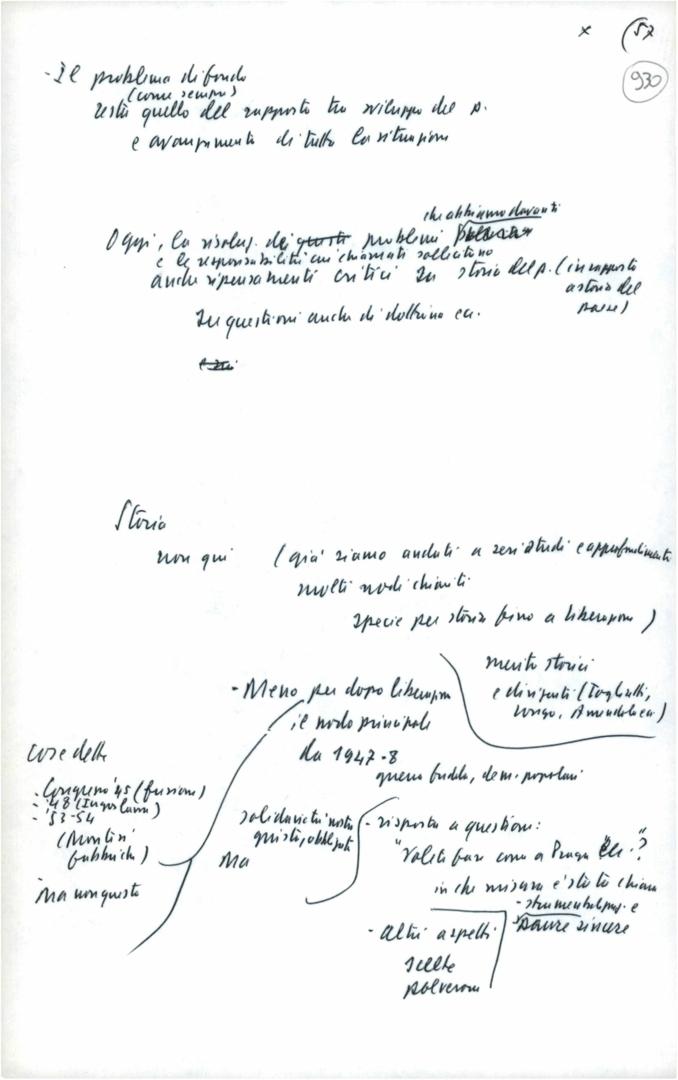 x (57
930
- Il problema di fondo
(come sempre)
resta quello del rapporto tra sviluppo del p.
e avanzamento di tutta la situazione
che abbiamo davanti
Oggi, la risoluz. dei questi problemi
e le responsabilità cui chiamati sollecitano
anche ripensamenti critici su storia del p. (in rapporto
a storia del
paese)
su questioni anche di dottrina ecc.
Storia
non qui (già siamo andati a seri studi e approfondimenti
molti nodi chiariti
specie per storia fino a liberazione)
merito storici
e dirigenti (Togliatti,
Longo, Amendola ecc)
- Meno per dopo liberazione
il nodo principale
da 1947-8
guerra fredda, dem. popolari
cose dette
- Congresso '45 (fusione)
- '48 (Jugoslavia)
- '53-54
(Montini
fabbriche)
Ma non questo
solidarietà nostra
giusta, obbligata
Ma
- risposta a questione:
"Volete fare come a Praga ecc.?"
in che misura c'è stata chiara
- strumentalizzaz. e
paure sincere
- Altri aspetti
scelte
polverone